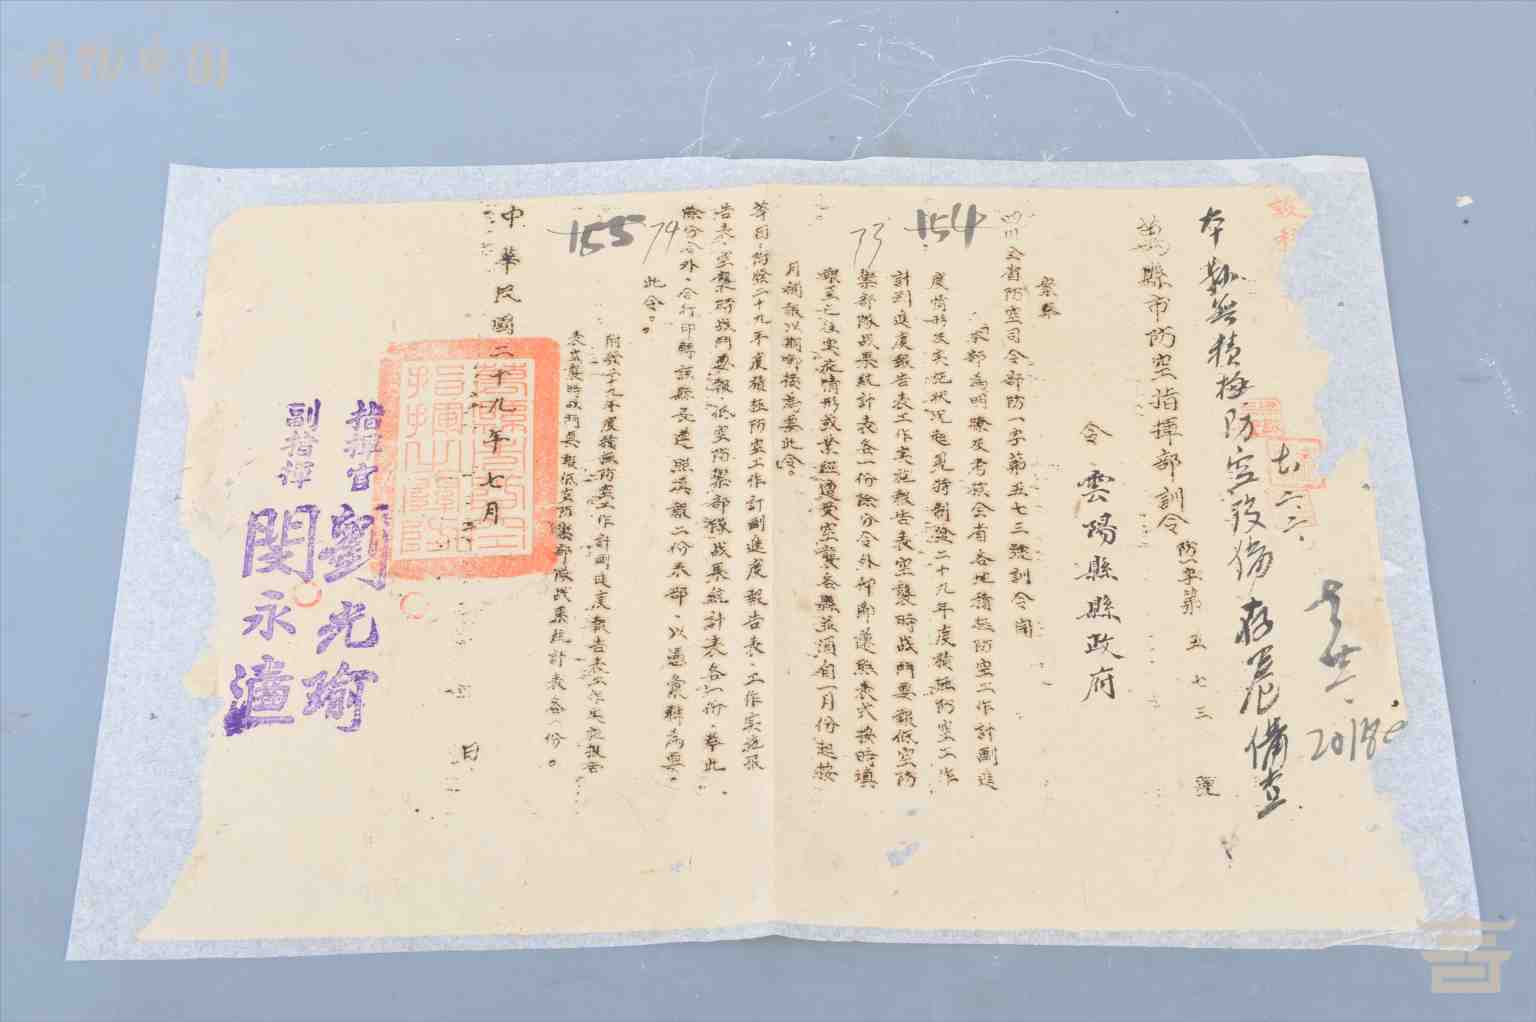 本縣無積極防空設備存卷備查
七、二、二
20180
萬縣市防空指揮部訓令
防字第五七三號
令雲陽縣縣政府
案奉
四川全省防空司令部防一字第五七三號訓令開
本部為明瞭及考核全省各地積極防空工作計劃進
度情形及实施狀況起見特制發二十九年度積極防空工作
計劃進度報告表工作实施報告表空襲時战鬥要報低空防
禦部隊战果統計表各一份除分令外仰即遵照表式按時填
報至之往实在情形或業經遭受空襲各縣並須自一月份起按
月補報以期啣接為要此令。
154
73
等因·附發二十九年度積極防空工作計劃進度報告表·工作实施报
告表·空襲時战鬥要報·低空防禦部隊战果統計表各一份·奉此
除分令外·合行印轉該縣長遵照填報二份来部·以憑彙轉為要。
此令。
附發二十九年度積極防空工作計劃進度報告表工作实施报告
表空襲時战鬥要报低空防禦部隊战果統計表各一份。
155
74
中華民國二十九年七月 日
指揮官 劉光瑜
副指揮 閔永濂